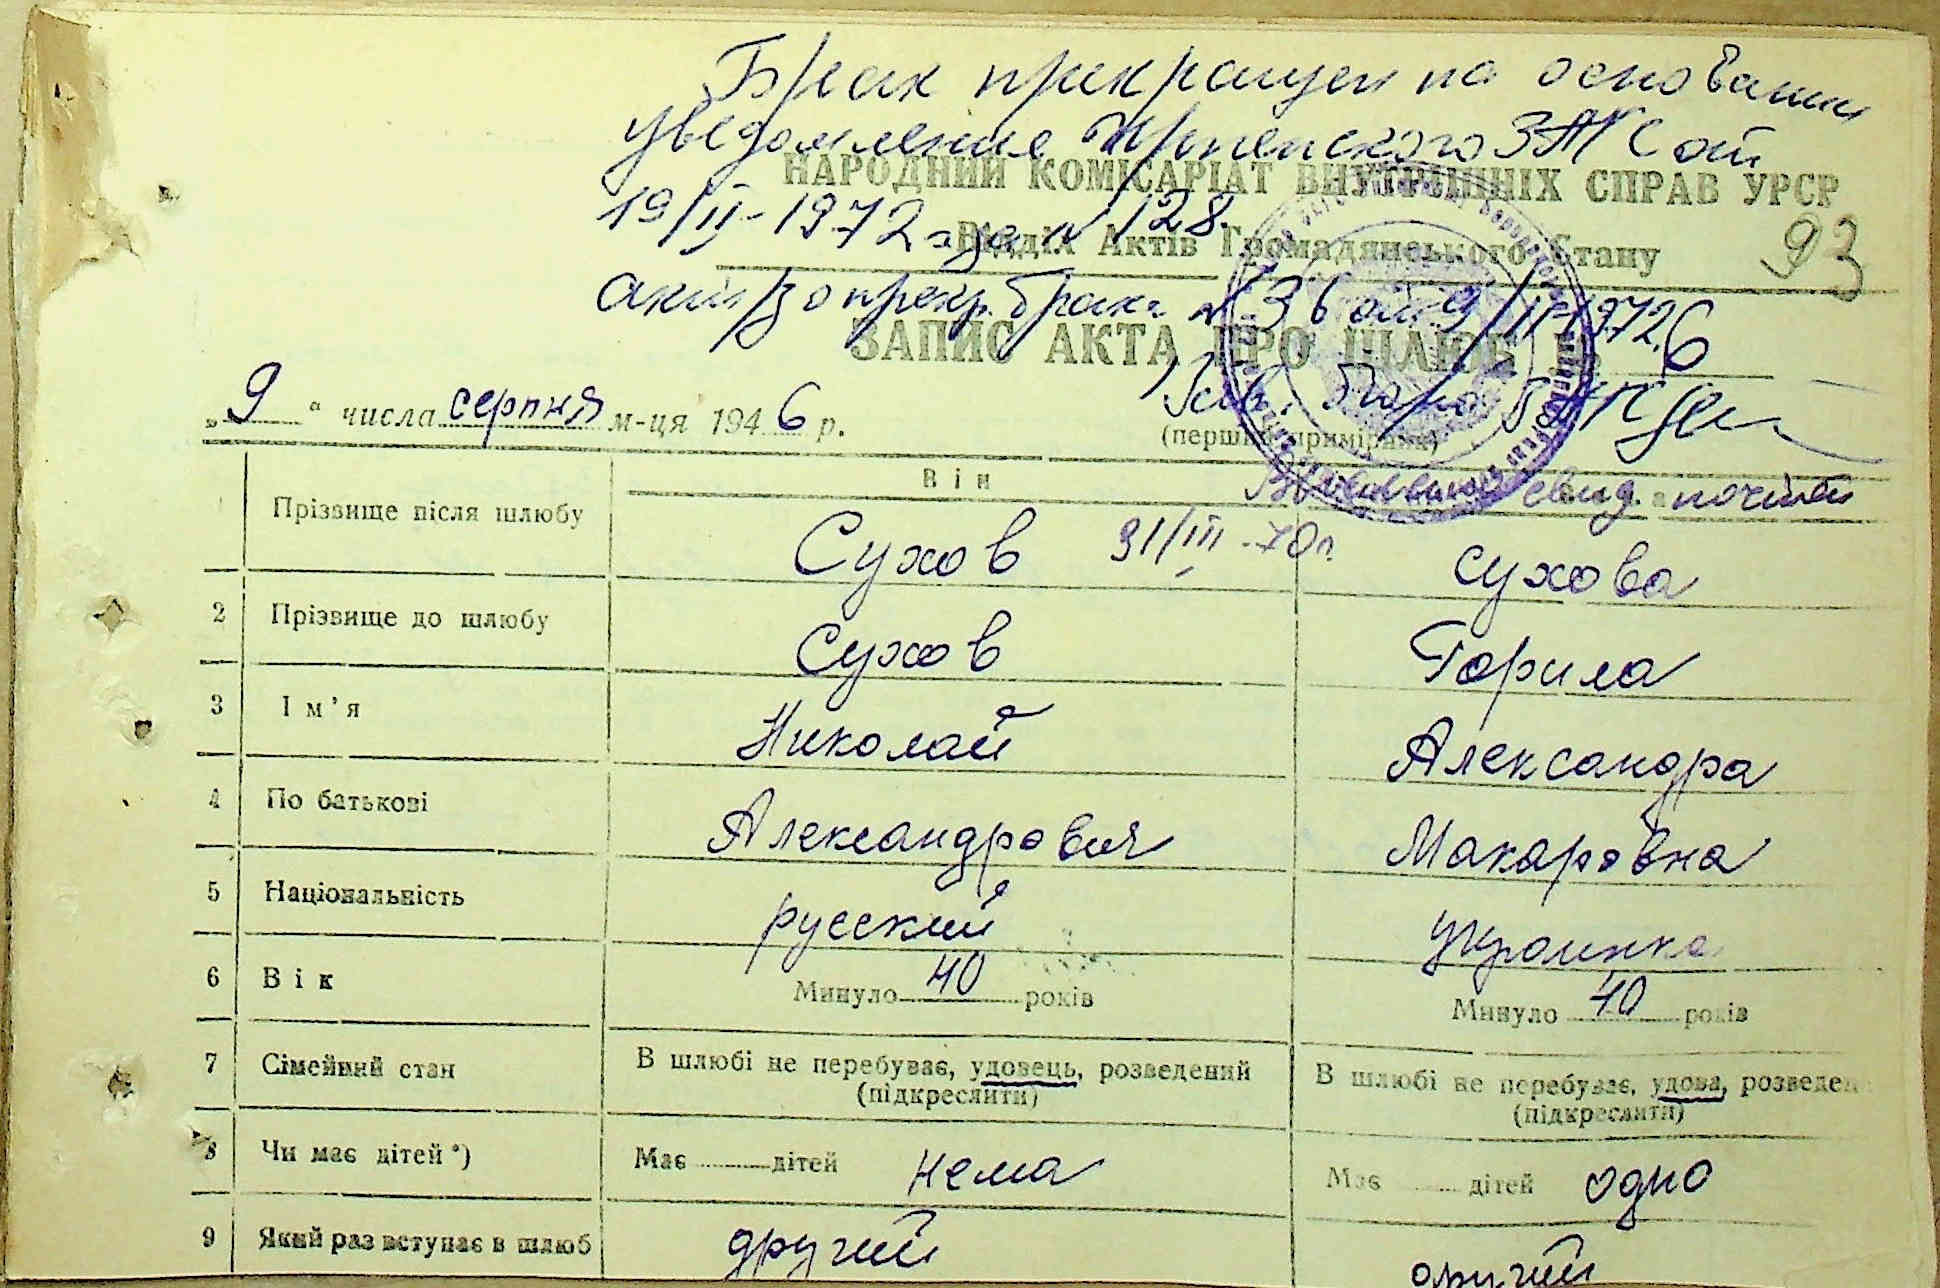 Брак прекращен на основании
уведомления Ирпенского ЗАГС от
НАРОДНИЙ КОМІСАРІАТ ВНУТРІШНІХ СПРАВ УРСР
19/II-1972 за № 128.
Відділ Актів Громадянського Стану
93
акт/з о прекр. брака № 36 от 9/II-1972.
ЗАПИС АКТА ПРО ШЛЮБ № 6
„ 9 “ числа серпня м-ця 194 6 р.
(перший примірник)
Він
свид. почтой
Прізвище після шлюбу Сухов 31/III-70г. Сухова
2 Прізвище до шлюбу Сухов Горила
3 Ім’я Николай Александра
4 По батькові Александрович Макаровна
5 Національність русский украинка
6 Вік Минуло 40 років Минуло 40 років
7 Сімейний стан В шлюбі не перебуває, удовець, розведений В шлюбі не перебуває, удова, розведен
(підкреслити) (підкреслити)
8 Чи має дітей*) Має дітей нема Має дітей одно
9 Який раз вступає в шлюб другий другий